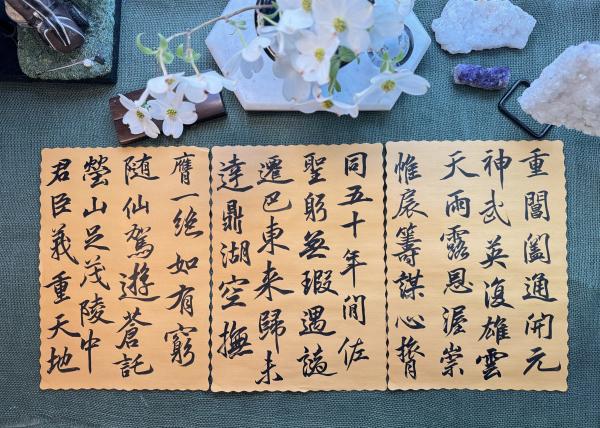 重閶闔通開元
神武英復雄雲
天雨露恩渥崇
惟扆籌謀心膂
同五十年間佐
聖躬無瑕遇謫
遷巴東来歸未
達鼎湖空撫
膺一絕如有窮
随仙駕遊蒼託
塋山足茂陵中
君臣義重天地